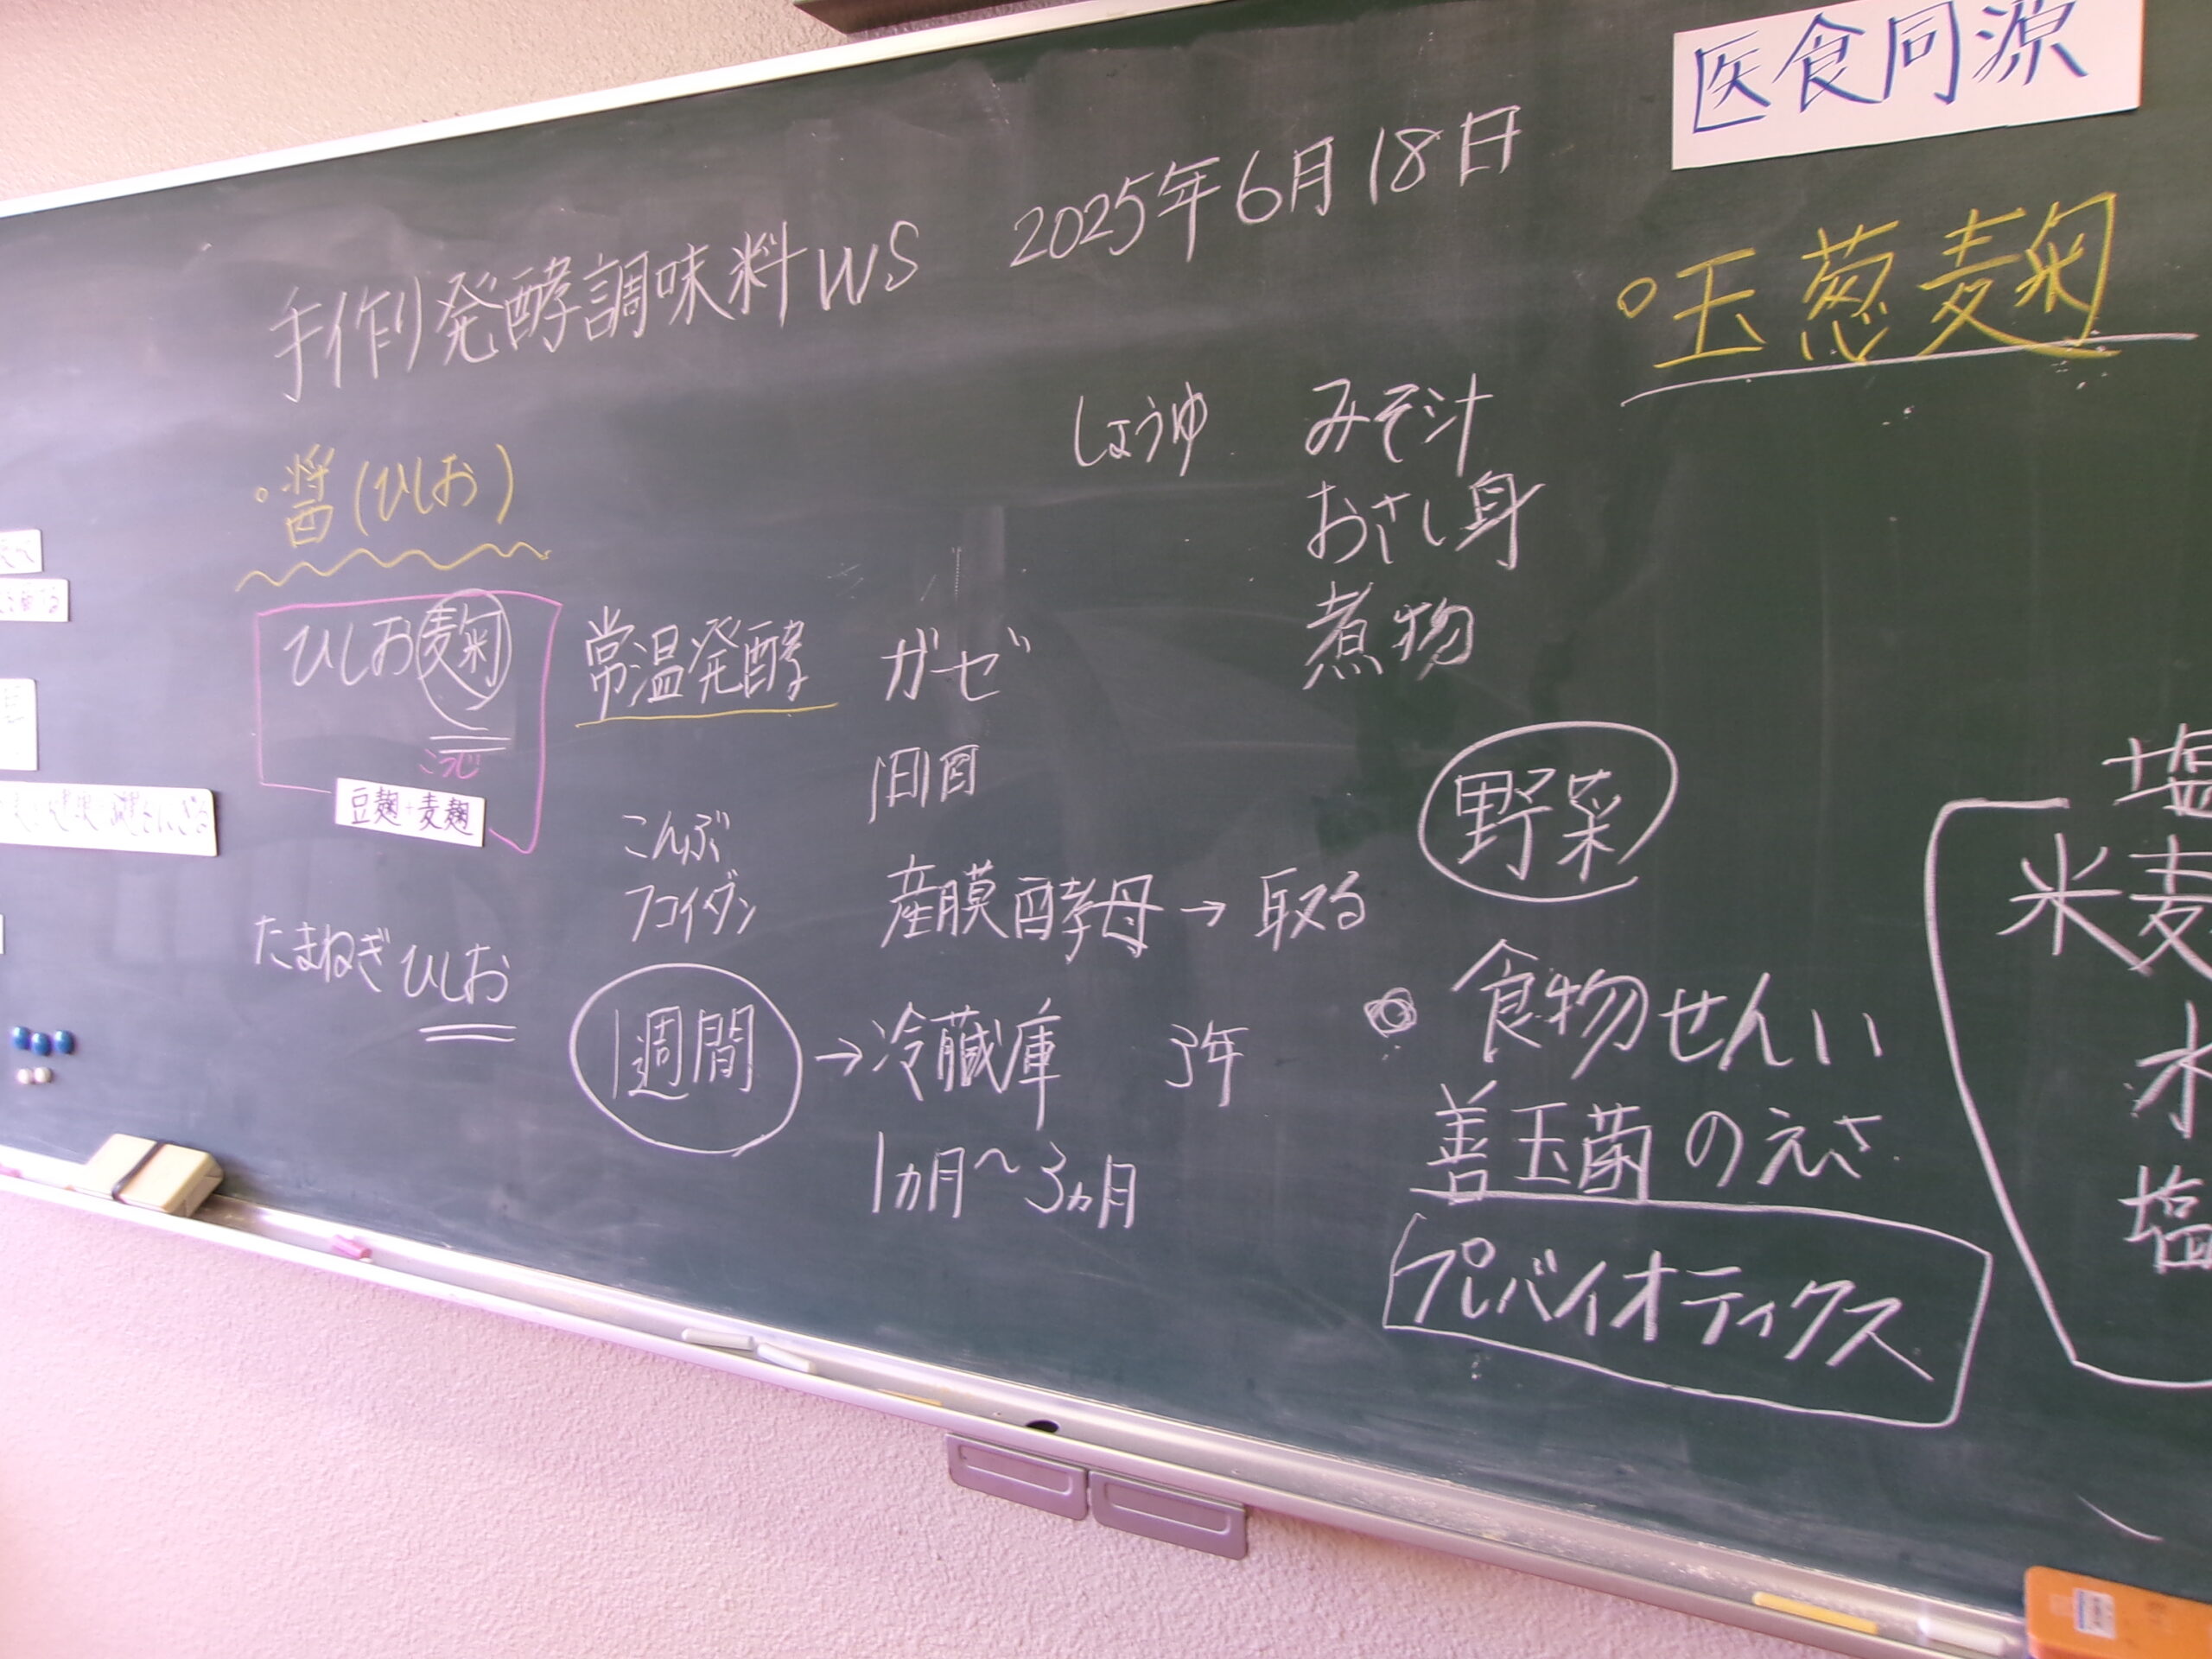 医食同源
手作り発酵調味料WS 2025年6月18日
○玉葱麹
しょうゆ みそ汁
おさし身
煮物
・醤(ひしお)
ひしお麹
こうじ
豆麹+麦麹
常温発酵 ガーゼ
1日1回
こんぶ
フコイダン
産膜酵母→取る
たまねぎひしお
1週間→冷蔵庫 3年
1ヵ月～3ヵ月
野菜
食物せんい
善玉菌のえさ
プレバイオティクス
塩
米麦
水
塩